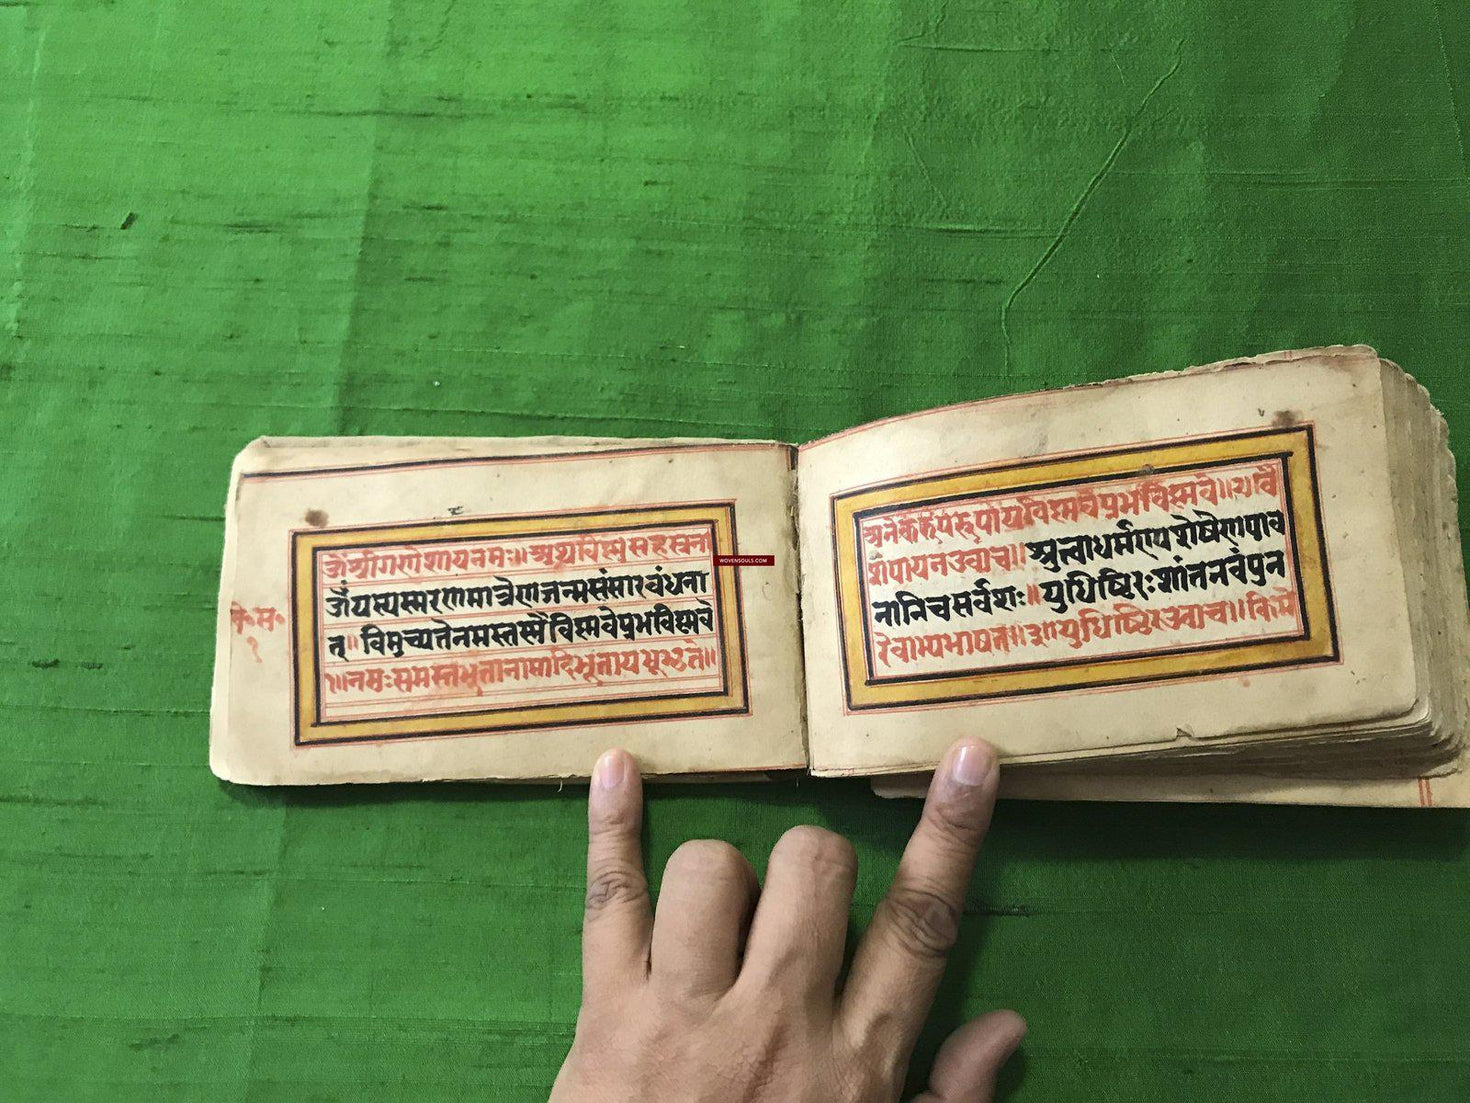 ॐश्रीगणेशायनमः॥अथविष्णुसहस्रना
ॐयस्यस्मरणमात्रेणजन्मसंसारबंधना
त्॥विमुच्यतेनमस्तस्मैविष्णवेप्रभविष्णवे
१॥नमःसमस्तभूतानामादिभूतायभूभृते॥
वि॰स॰
१
अनेकरूपरूपायविष्णवेप्रभविष्णवे॥॥वै
शंपायनउवाच॥श्रुत्वाधर्माण्यशेषेणपाव
नानिचसर्वशः॥युधिष्ठिरःशांतनवंपुन
रेवाभ्यभाषत॥॥युधिष्ठिरउवाच॥किमे
WOVENSOULS.COM